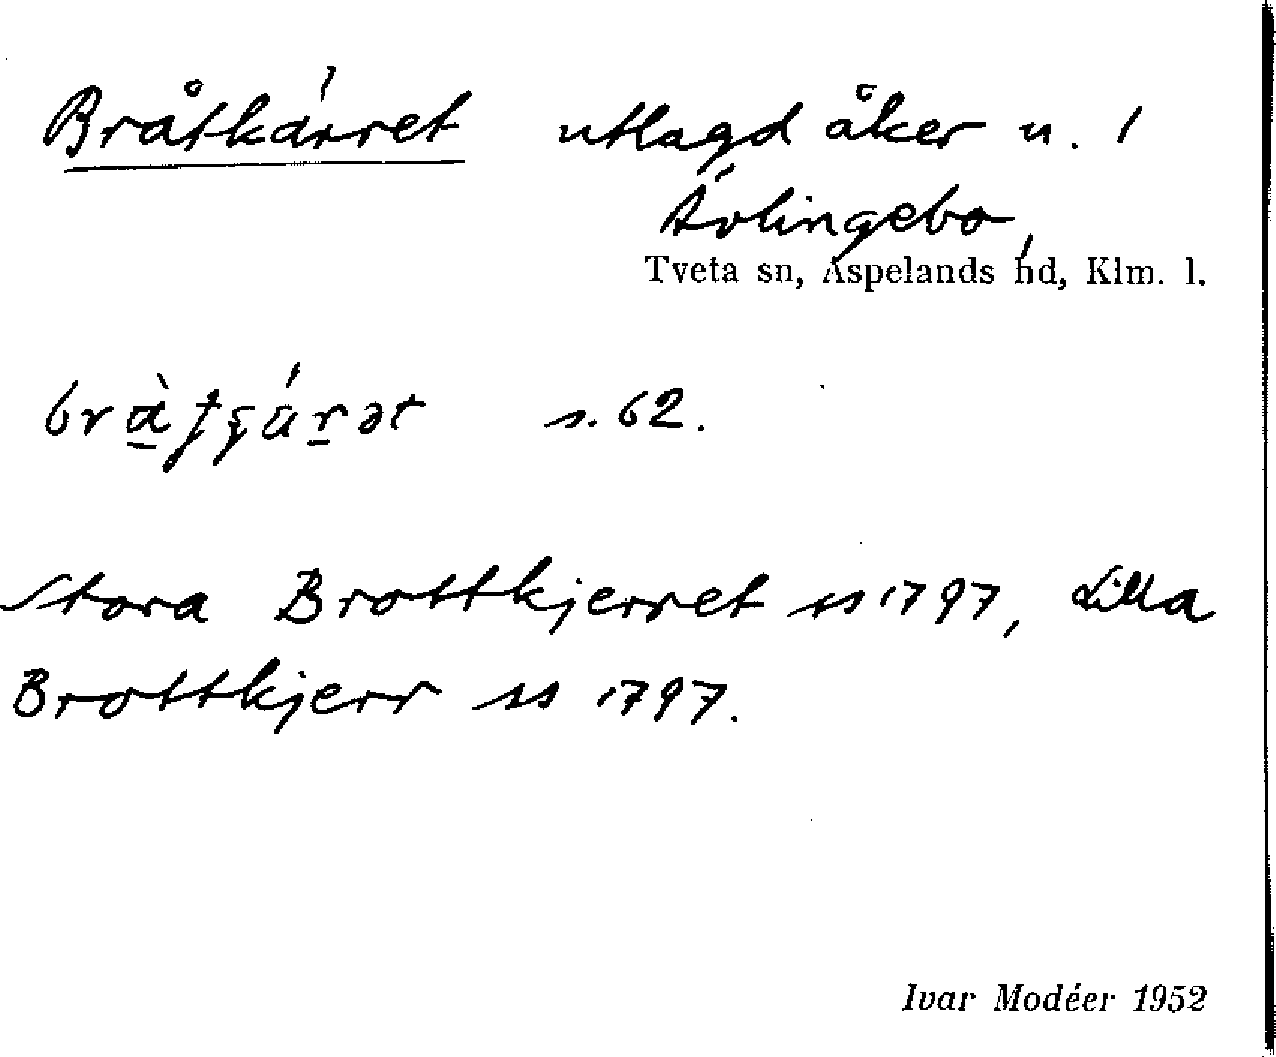 Bråtkärret utlagd åker u. 1
Ävlingebo,
Tveta sn, Aspelands hd, Klm. l.
s. 62.
Stora Brottkjerret ss 1797, Lilla
Brottkjerr ss 1797.
Ivar Modéer 1952